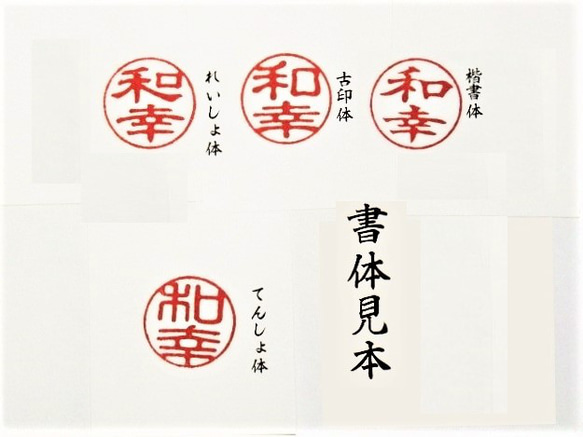 和幸
れいしよ体
和幸
古印体
和幸
楷書体
和幸
てんしよ体
書体見本